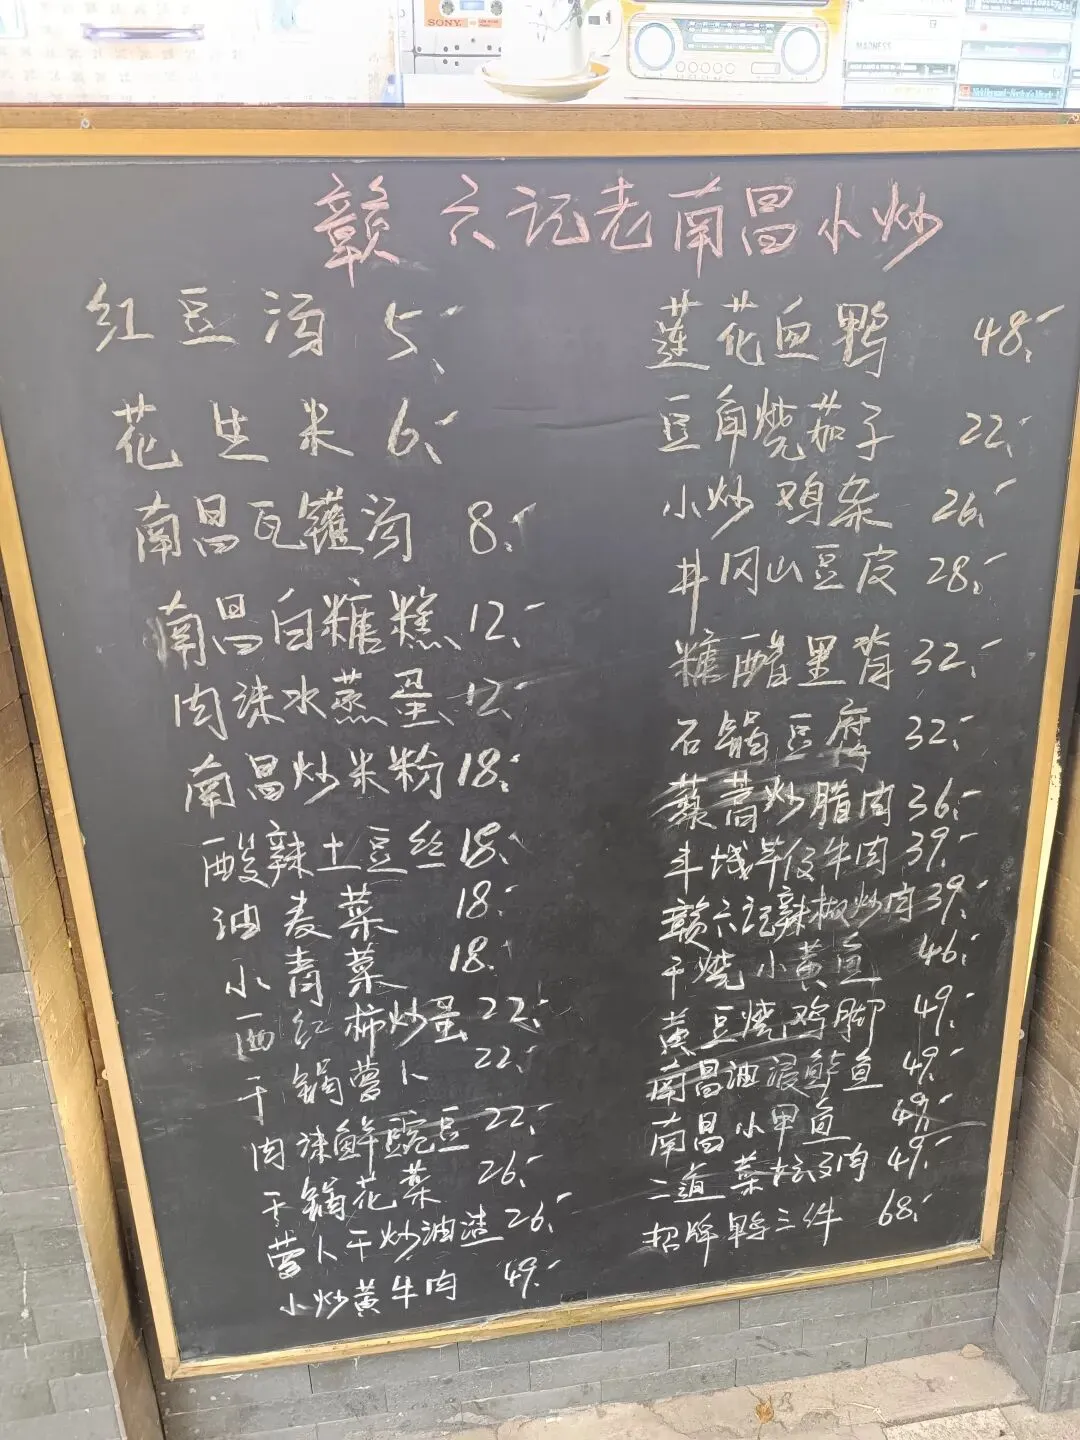 SONY
MADNESS
赣六记老南昌小炒
红豆汤 5、
花生米 6、
南昌瓦罐汤 8、
南昌白糖糕、12、
肉沫水蒸蛋、12、
南昌炒米粉 18、
酸辣土豆丝 18、
油麦菜 18、
小青菜 18、
西红柿炒蛋 22、
干锅萝卜 22、
肉沫鲜豌豆 22、
干锅花菜 26、
萝卜干炒油渣 26、
小炒黄牛肉 49、
莲花血鸭 48、
豆角烧茄子 22、
小炒鸡杂 26、
井冈山豆皮 28、
糖醋里脊 32、
石锅豆腐 32、
藜蒿炒腊肉 36、
丰城芋仔牛肉 39、
赣六记辣椒炒肉 39、
干烧小黄鱼 46、
黄豆烧鸡脚 49、
南昌油浸鲜鱼 49、
南昌小甲鱼 49、
二道菜 肉 49、
招牌 三件 68、